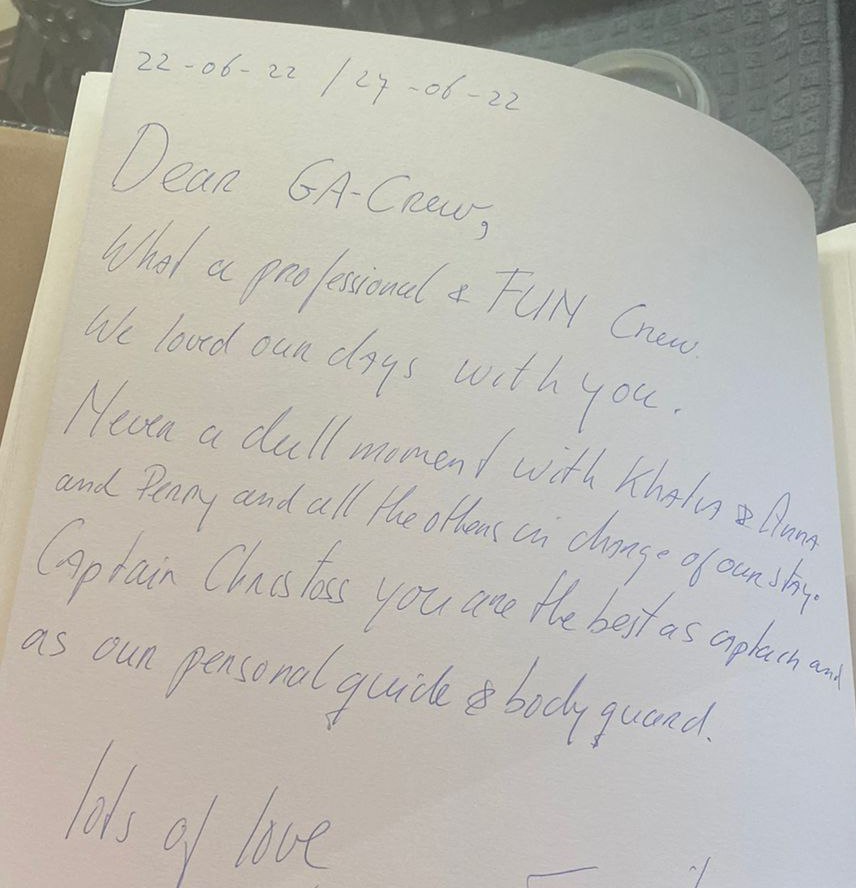 22-06-22 / 27-06-22
Dear GA-Crew,
What a professional & FUN Crew.
We loved our days with you.
Never a dull moment with Khalia & Anna
and Perry and all the others in charge of our stay.
Captain Christoss you are the best as captain and
as our personal guide & body guard.
lots of love